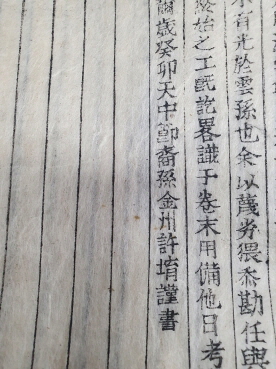 有光於雲孫也余以蔑劣猥忝勘任與
始之工旣訖畧識于卷末用備他日考
歲癸卯天中節裔孫金州許堉謹書